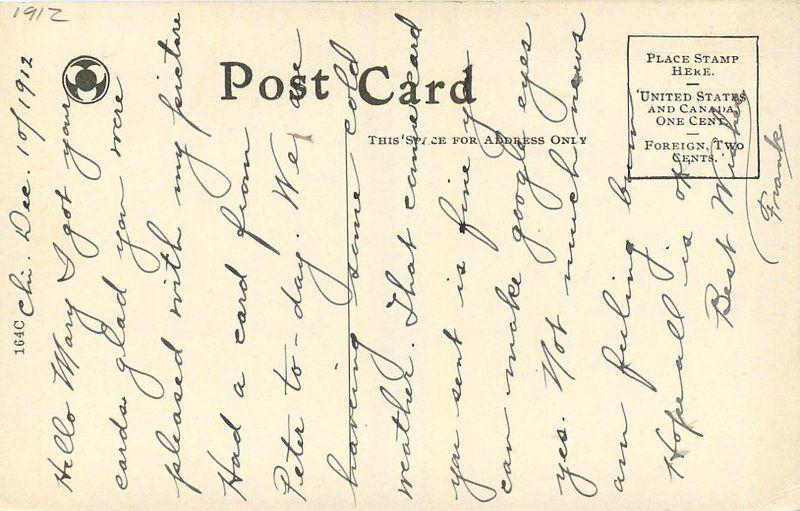 1912
Post Card
THIS SPACE FOR ADDRESS ONLY
PLACE STAMP
HERE.
UNITED STATES
AND CANADA,
ONE CENT.
FOREIGN, TWO
CENTS.
164C
Chi. Dec. 10/1912
Hello Mary I got your
cards glad you were
pleased with my picture
Had a card from
Peter to-day. We are
haveing some cold
weather. That came card
you sent is fine y
can make google eyes
yes. Not much news
am feeling bum
Hope all is ok.
Best Wishes
Frank